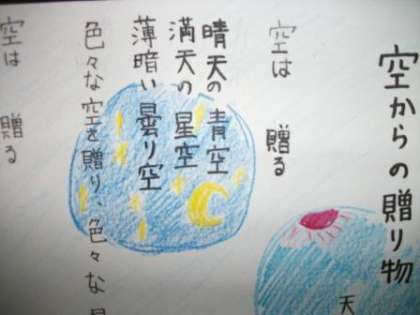 空からの贈り物
天
空は 贈る
晴天の 青空
満天の 星空
薄暗い 曇り空
色々な空を贈り、色々な
空は 贈る